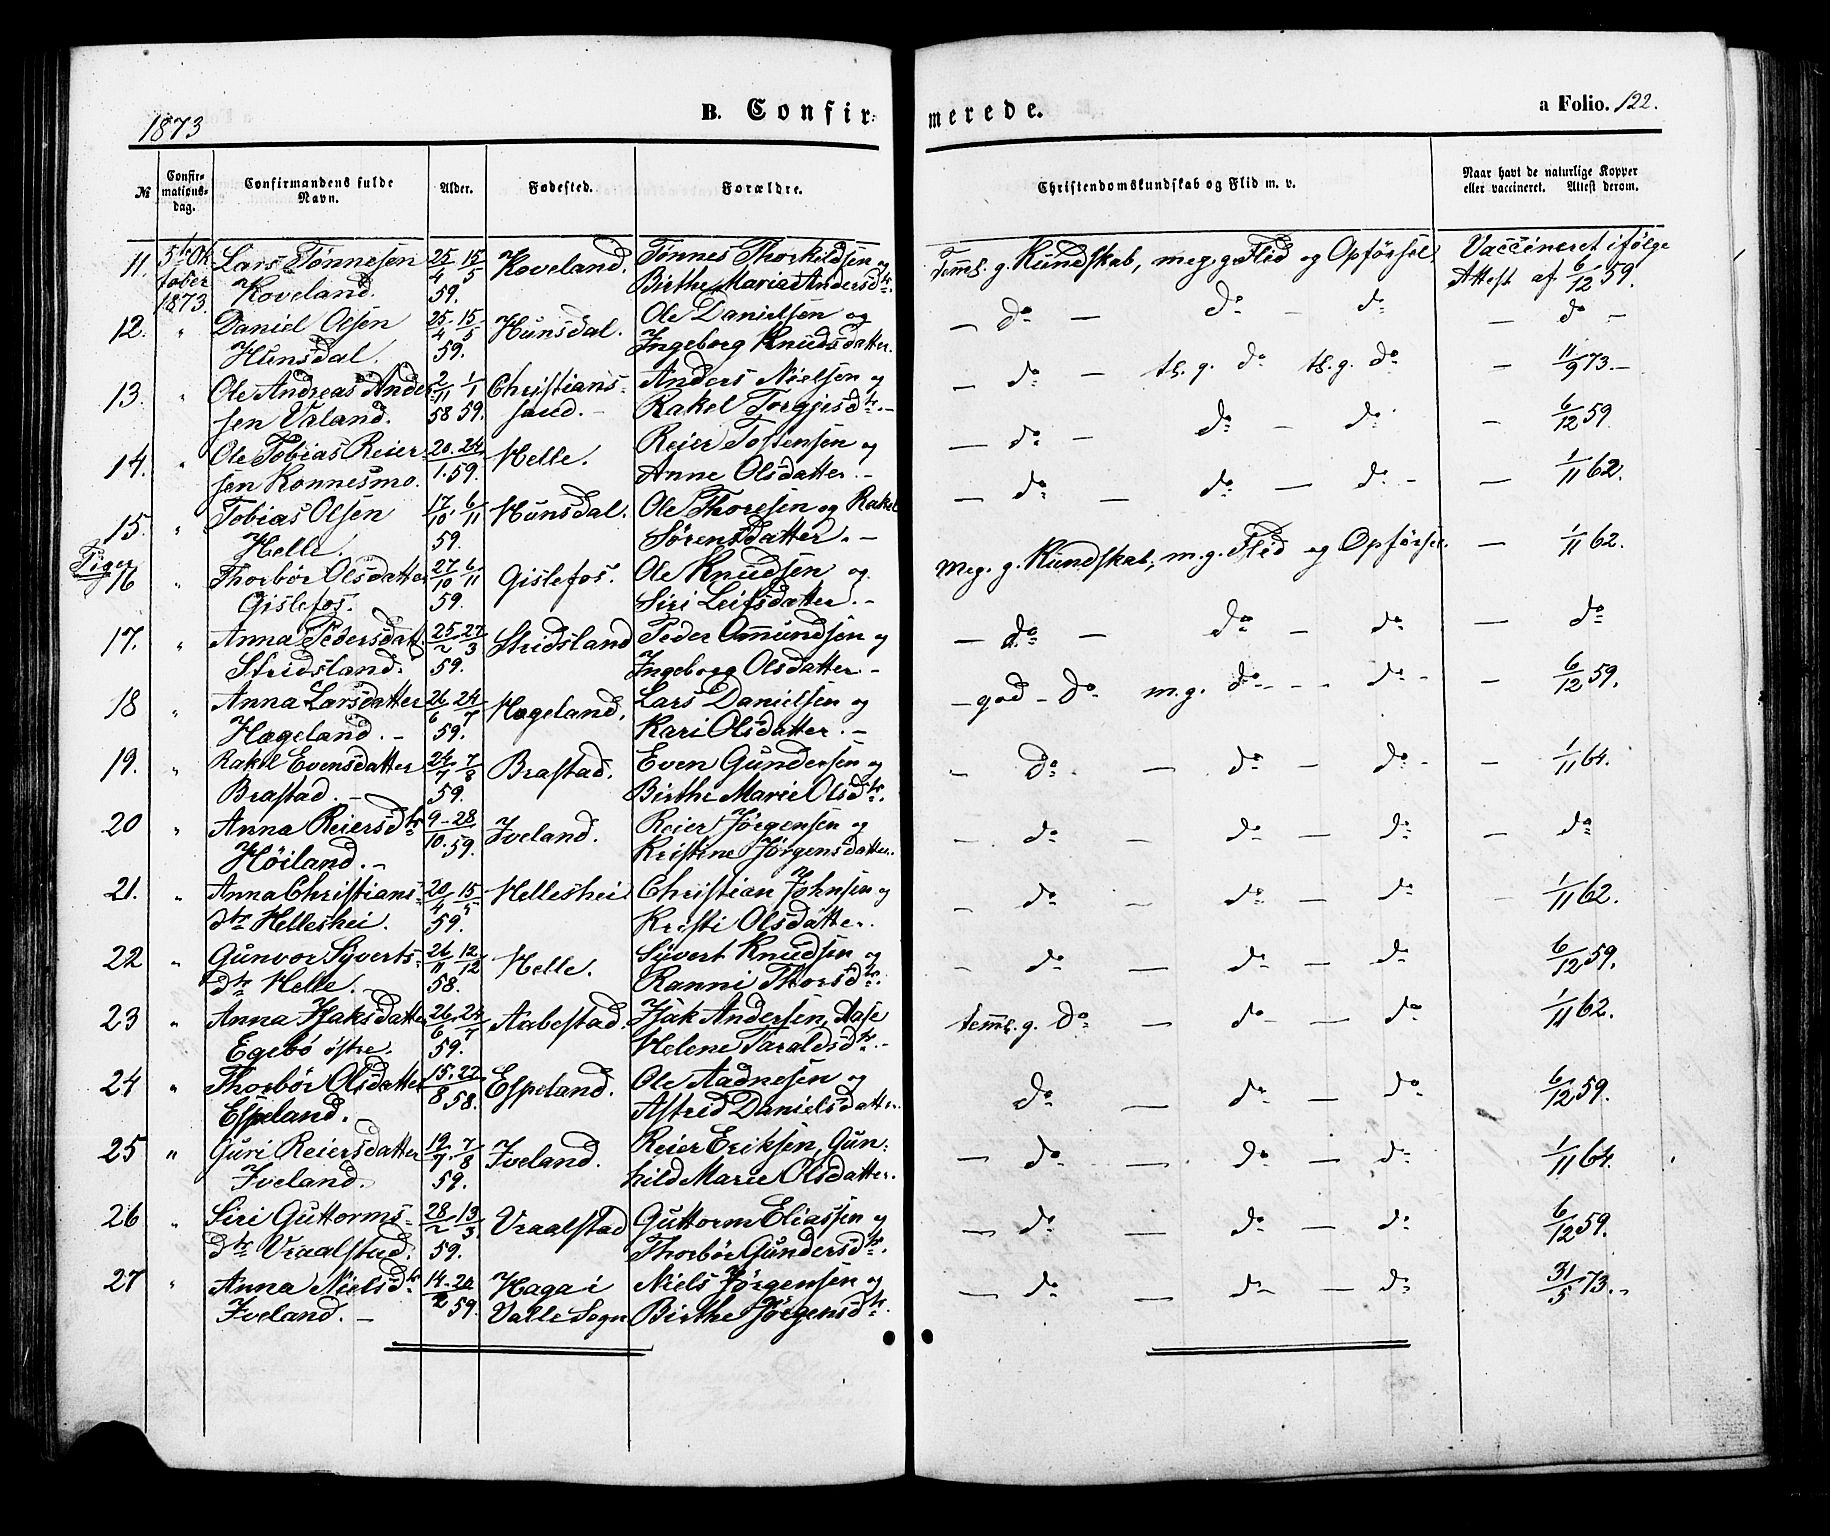 1873
B. Confirmerede.
a Folio. 122.
№ Confirmationsdag. Confirmandens fulde Navn. Alder. Fødested. Forældre. Christendomskundskab og Flid m. v. Naar havt de naturlige Kopper eller vaccineret. Attest derom.
11. 5te Ok- Lars Tønnesen 25/4 15/5 Koveland. Tønnes Thorkildsen og Temml. g. Kundskab, meg. g. Flid og Opførsel Vaccineret ifølge
tober 1873. Koveland. 59. Birthe Maria Andersdtr. Attest af 6/12 59.
12. " Daniel Olsen 25/4 15/5 Hunsdal. Ole Danielsen og — do — do — do — do —
Hunsdal. 59. Ingeborg Knudsdatter.
13. " Ole Andreas Ander- 2/11 1/1 Christians- Anders Nielsen og — do — tb. g. do tb. g. do — 11/9 73. —
sen Valand. 58 59. sand. — Rakel Torgjisdtr. —
14. " Ole Tobias Reier- 20. 24. Helle. Reier Tostensen og — do — do — do — 6/12 59
sen Konnesmo. 1. 59. Anne Olsdatter. —
15. " Tobias Olsen 17/10 6/11 Hunsdal. Ole Thoresen og Rakel — do — do — do — — 1/11 62.
Helle. 59. Sørensdatter. —
Piger
16 " Thorbør Olsdatter 27/10 6/11 Gislefos. Ole Knudsen og Meg. g. Kundskab, m. g. Flid og Opførsel. — 1/11 62.
Gislefos. 59. Siri Leifsdatter. —
17. " Anna Pedersdat. 25/2 27/3 Stridsland Peder Omundsen og — do — do — do — do
Stridsland. 59. Ingeborg Olsdatter —
18 " Anna Larsdatter 26/6 24/7 Hægeland. Lars Danielsen og — god — do m. g. do — — do — — 6/12 59.
Hægeland. — 59. Kari Olsdatter. —
19. " Rakel Evensdatter 24/7 7/8 Brastad. Even Gundersen og — do. — do — do — — 1/11 64.
Brastad. — 59. Birthe Marie Olsdtr.
20 " Anna Reiersdtr 9 — 28 Iveland. Reier Jørgensen og — do — do — do — do
Høiland. — 10. 59. Kristine Jørgensdatter.
21. " Anna Christians- 20/4 15/5 Helleshei Christian Johnsen og — do — do — do 1/11 62.
dtr Helleshei. 59. Kristi Olsdatter.
22 " Gunvor Syverts- 26/11 12/12 Helle. Syvert Knudsen og — do — do — do 6/12 59.
dtr Helle. — 58. Ranni Thorsdtr.
23 " Anna Isaksdatter 26/6 24/7 Aabestad. Isak Andersen, Aase temml. g. do — do — do 1/11 62.
Egebø østre. 59. Helene Taraldsdtr. —
24 " Thorbør Olsdatter 15. 22. Espeland. Ole Aadnesen og do — do — do 6/12 59.
Espeland. 8 58. Astrid Danielsdatter.
25 " Guri Reiersdatter 12/7. 7/8 Iveland. Reier Eriksen, Gun- — do — do — do 1/11 64.
Iveland. 59. hild Marie Olsdatter.
26 " Siri Guttorms- 28/2 13/3. Vraalstad Guttorm Eliassen og — do — do — do 6/12 59.
dtr Vraalstad. 59. Thorbør Gundersdtr.
27 " Anna Nielsdtr 14 — Haga i Niels Jørgensen og — do — do — do 31/5 73. —
Iveland. — 2 59. Valle Sogn Birthe Jørgensdtr.